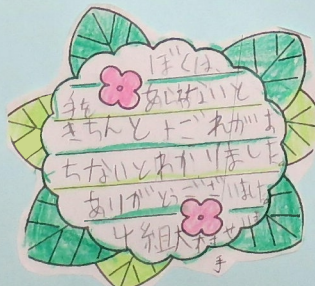 ぼくは、
手をあらわないと
きちんとよごれがお
ちないとわかりました
ありがとうございました
4組